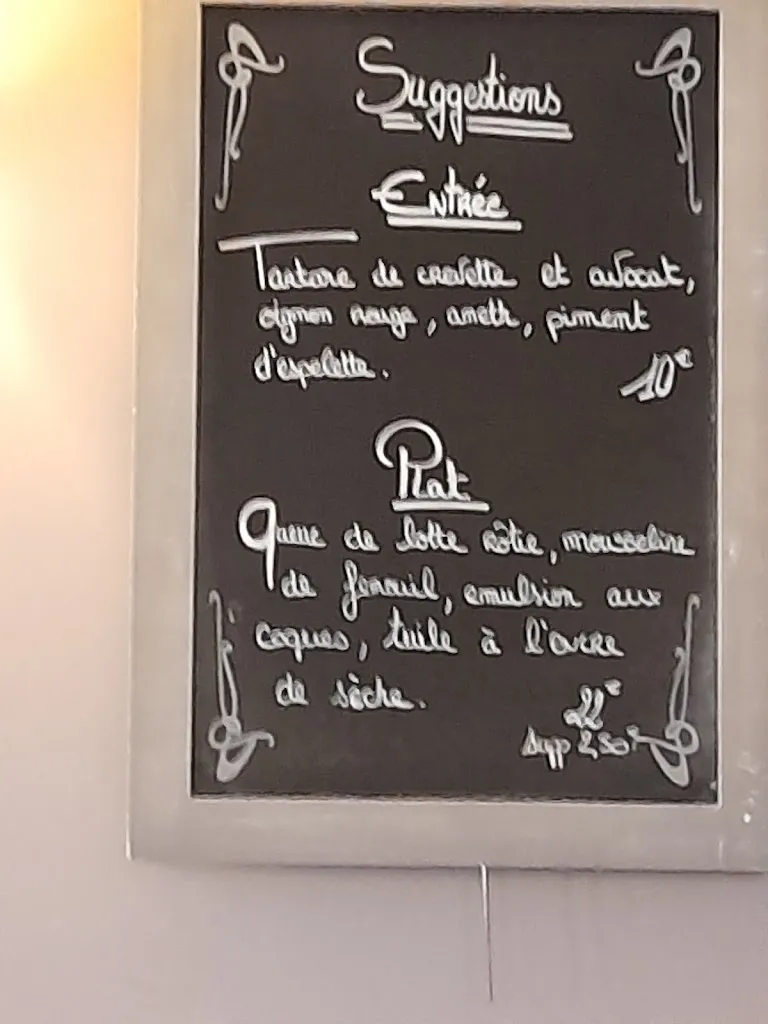 Suggestions
Entrée
Tartare de crevette et avocat,
oignon rouge, aneth, piment
d'espelette.
10€
Plat
Queue de lotte rôtie, mousseline
de fenouil, emulsion aux
coques, tuile à l'encre
de sèche.
22€
Supp 2,50€